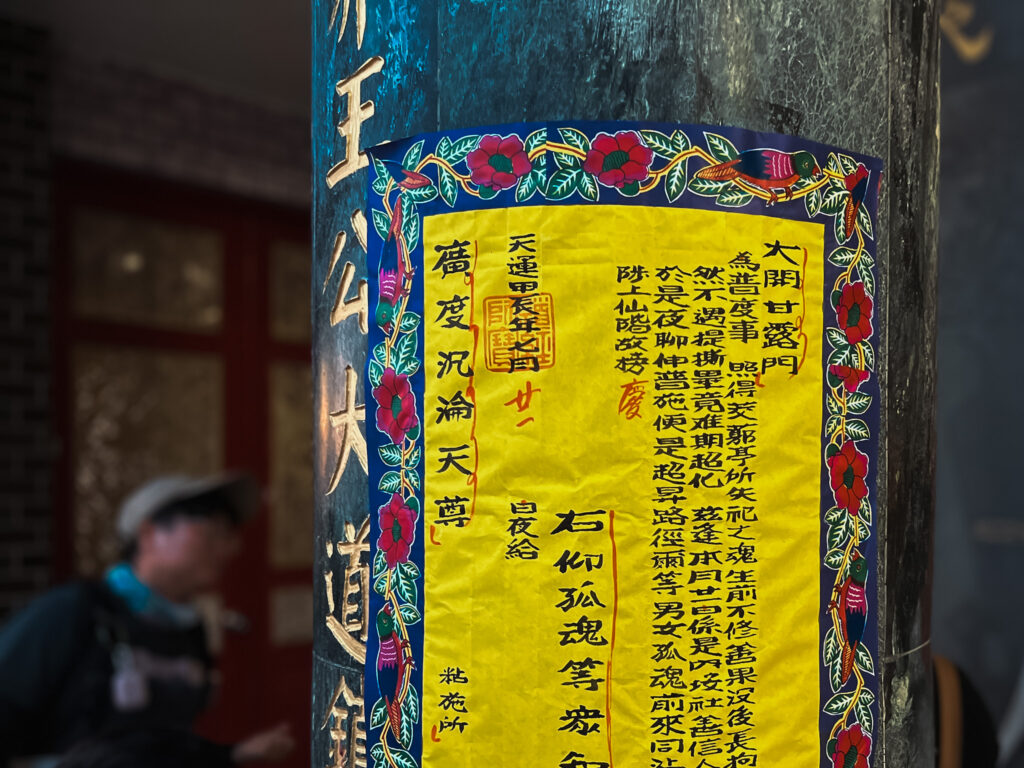 大開甘露門
為普度事 照得交郵亭所失祀之魂生前不修善果沒後長拘
然不遇提撕畢竟难期超化 茲逢本月廿日係是內社善信人
於是夜聊伸普施便是超昇路徑爾等男女孤魂前來同沾
陟上仙階故榜 慶
右仰孤魂等眾知
天運甲辰年七月廿一 白夜給
廣度沉淪天尊 粘施所
王公大道鎮